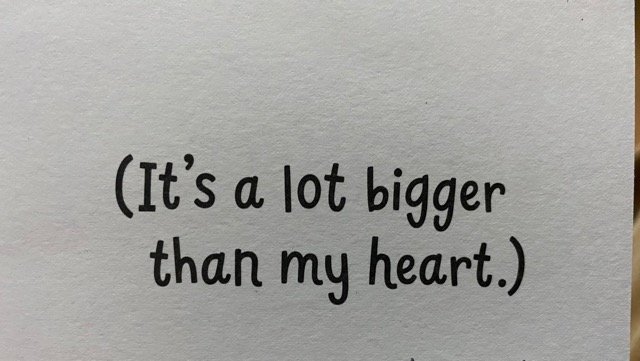 (It's a lot bigger
than my heart.)